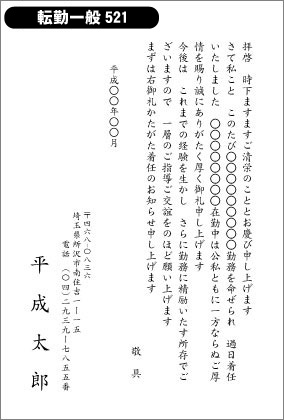 転勤一般 521
拝啓 時下ますますご清栄のこととお慶び申し上げます
さて私こと このたび〇〇〇〇〇〇〇〇勤務を命ぜられ 過日着任
いたしました 〇〇〇〇〇〇在勤中は公私ともに一方ならぬご厚
情を賜り誠にありがたく厚く御礼申し上げます
今後は これまでの経験を生かし さらに勤務に精励いたす所存でご
ざいますので 一層のご指導ご交誼をのほど願い上げます
まずは右御礼かたがた着任のお知らせ申し上げます
敬具
平成〇〇年〇〇月
〒四六八-〇八三六
埼玉県所沢市南住吉一-一五
電話 (〇四)二九三九-七八五五番
平成太郎